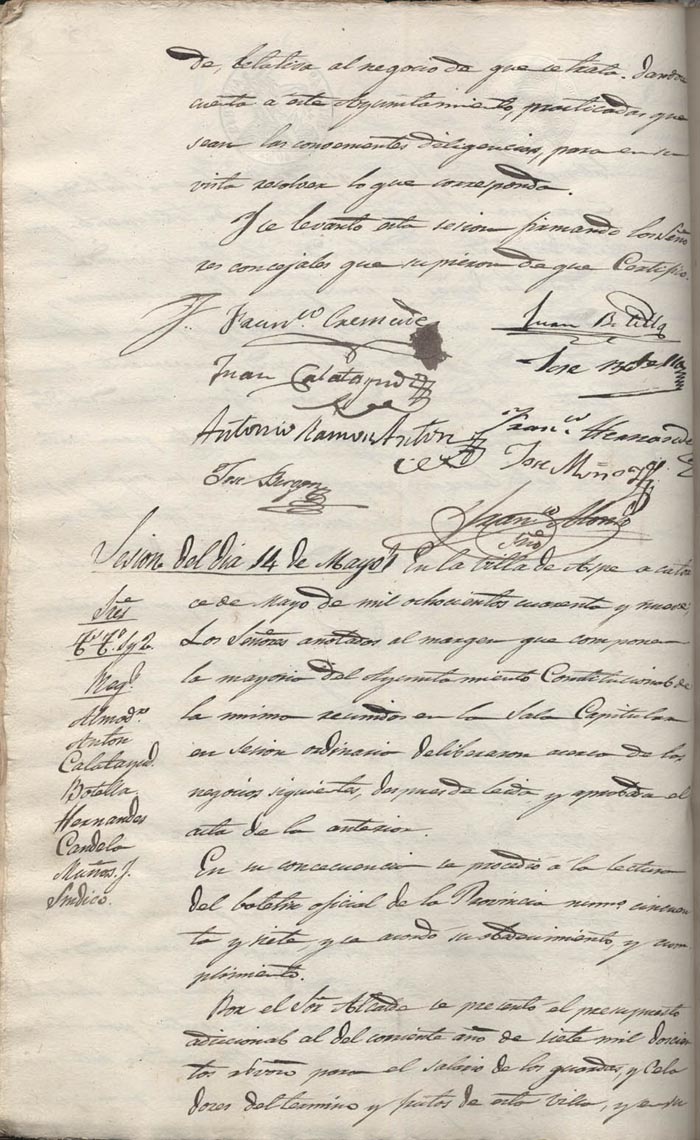 de, relativa al negocio de que se trata. dandose
cuenta á este Ayuntamiento, practicadas que
sean las convenientes diligencias, para en su
vista resolver lo que corresponda.
Y se levantó esta sesion firmando los Seño
res concejales que supieron de que Certifico.
Juan Botella
Jose Botella
Juan Calatayud
Antonio Ramon Anton
Fran.co Hernandez
Jose Muñoz
Fran.co Alonso
Srio
Sesion del dia 14 de Mayo
En la villa de Aspe a cator
ce de Mayo de mil ochocientos cuarenta y nueve,
Los Señores anotados al margen que componen
la mayoria del Ayuntamiento Constitucional de
la misma reunidos en la Sala Capitular
en sesion ordinaria deliberaron acerca de los
negocios siguientes, despues de leida y aprobada el
acta de la anterior.
Sres
T.e T.e 1.º y 2.º
Reg.s
Almod.r
Anton
Calatayud.
Botella
Hernandes
Candela
Muños. J.
Sindico.
En su concecuencia se procedió á la lectura
del boletin oficial de la Provincia num.º cincuen
ta y siete y se acordó su obedecimiento, y cum
plimiento.
Por el Sor Alcalde se presentó el presupuesto
adicional al del corriente año de siete mil doscien
tos r.s von para el salario de los guardas, y Cela
dores del termino y frutos de esta villa, y en su